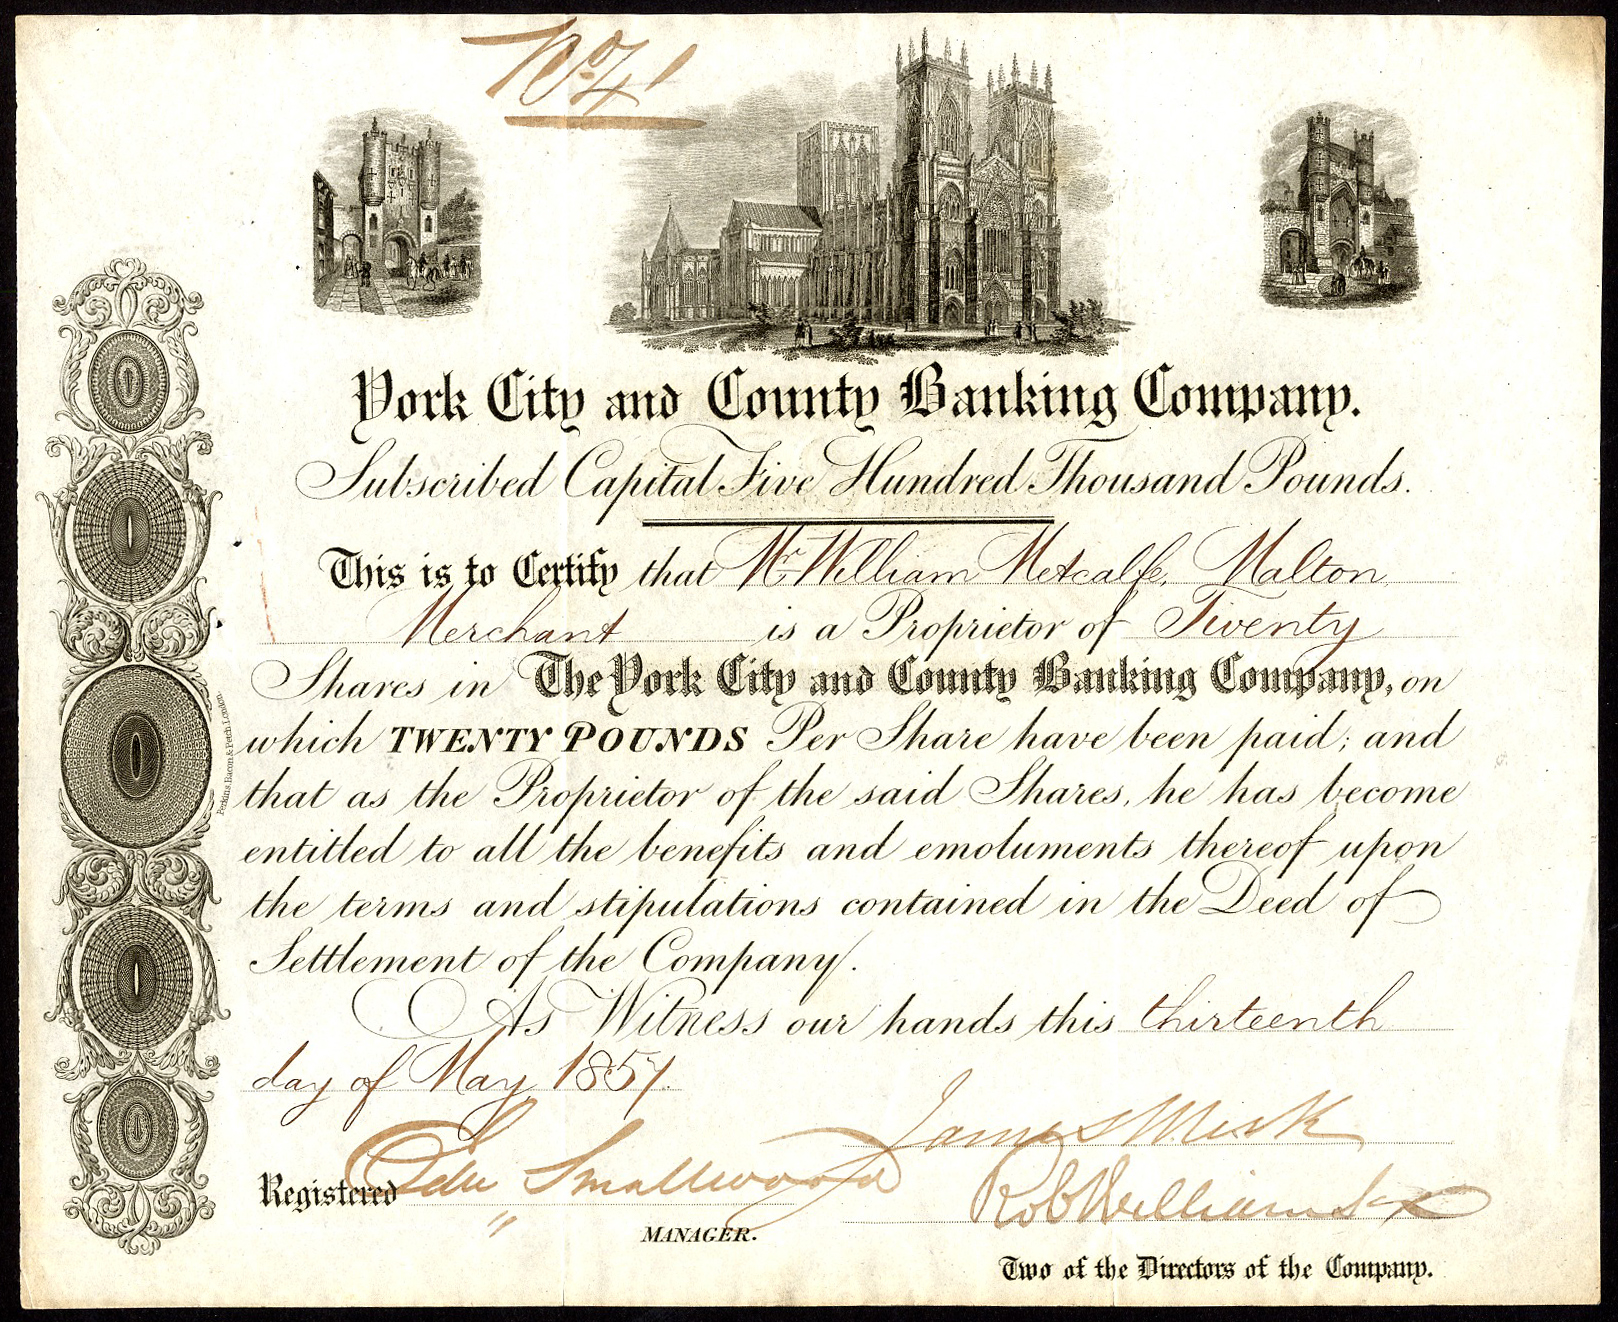 No. 41
York City and County Banking Company.
Subscribed Capital Five Hundred Thousand Pounds.
This is to Certify that Mr. William Metcalfe, Malton,
Merchant is a Proprietor of Twenty
Shares in The York City and County Banking Company, on
which TWENTY POUNDS Per Share have been paid; and
that as the Proprietor of the said Shares, he has become
entitled to all the benefits and emoluments thereof upon
the terms and stipulations contained in the Deed of
Settlement of the Company.
As Witness our hands this thirteenth
day of May, 1857.
James
Registered Smallwood
Rob Williamson
MANAGER.
Two of the Directors of the Company.
Perkins, Bacon & Petch, London.